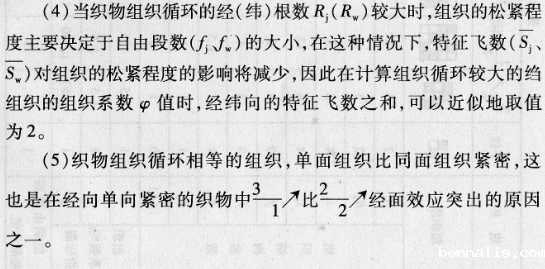 (4)当织物组织循环的经(纬)根数Rj(Rw)较大时,组织的松紧程
度主要决定于自由段数(fj、fw)的大小,在这种情况下,特征飞数(S̅j、
S̅w)对组织的松紧程度的影响将减少,因此在计算组织循环较大的绉
组织的组织系数φ值时,经纬向的特征飞数之和,可以近似地取值
为2。
(5)织物组织循环相等的组织,单面组织比同面组织紧密,这
也是在经向单向紧密的织物中3/1↗比2/2↗经面效应突出的原因
之一。
bennalis.com